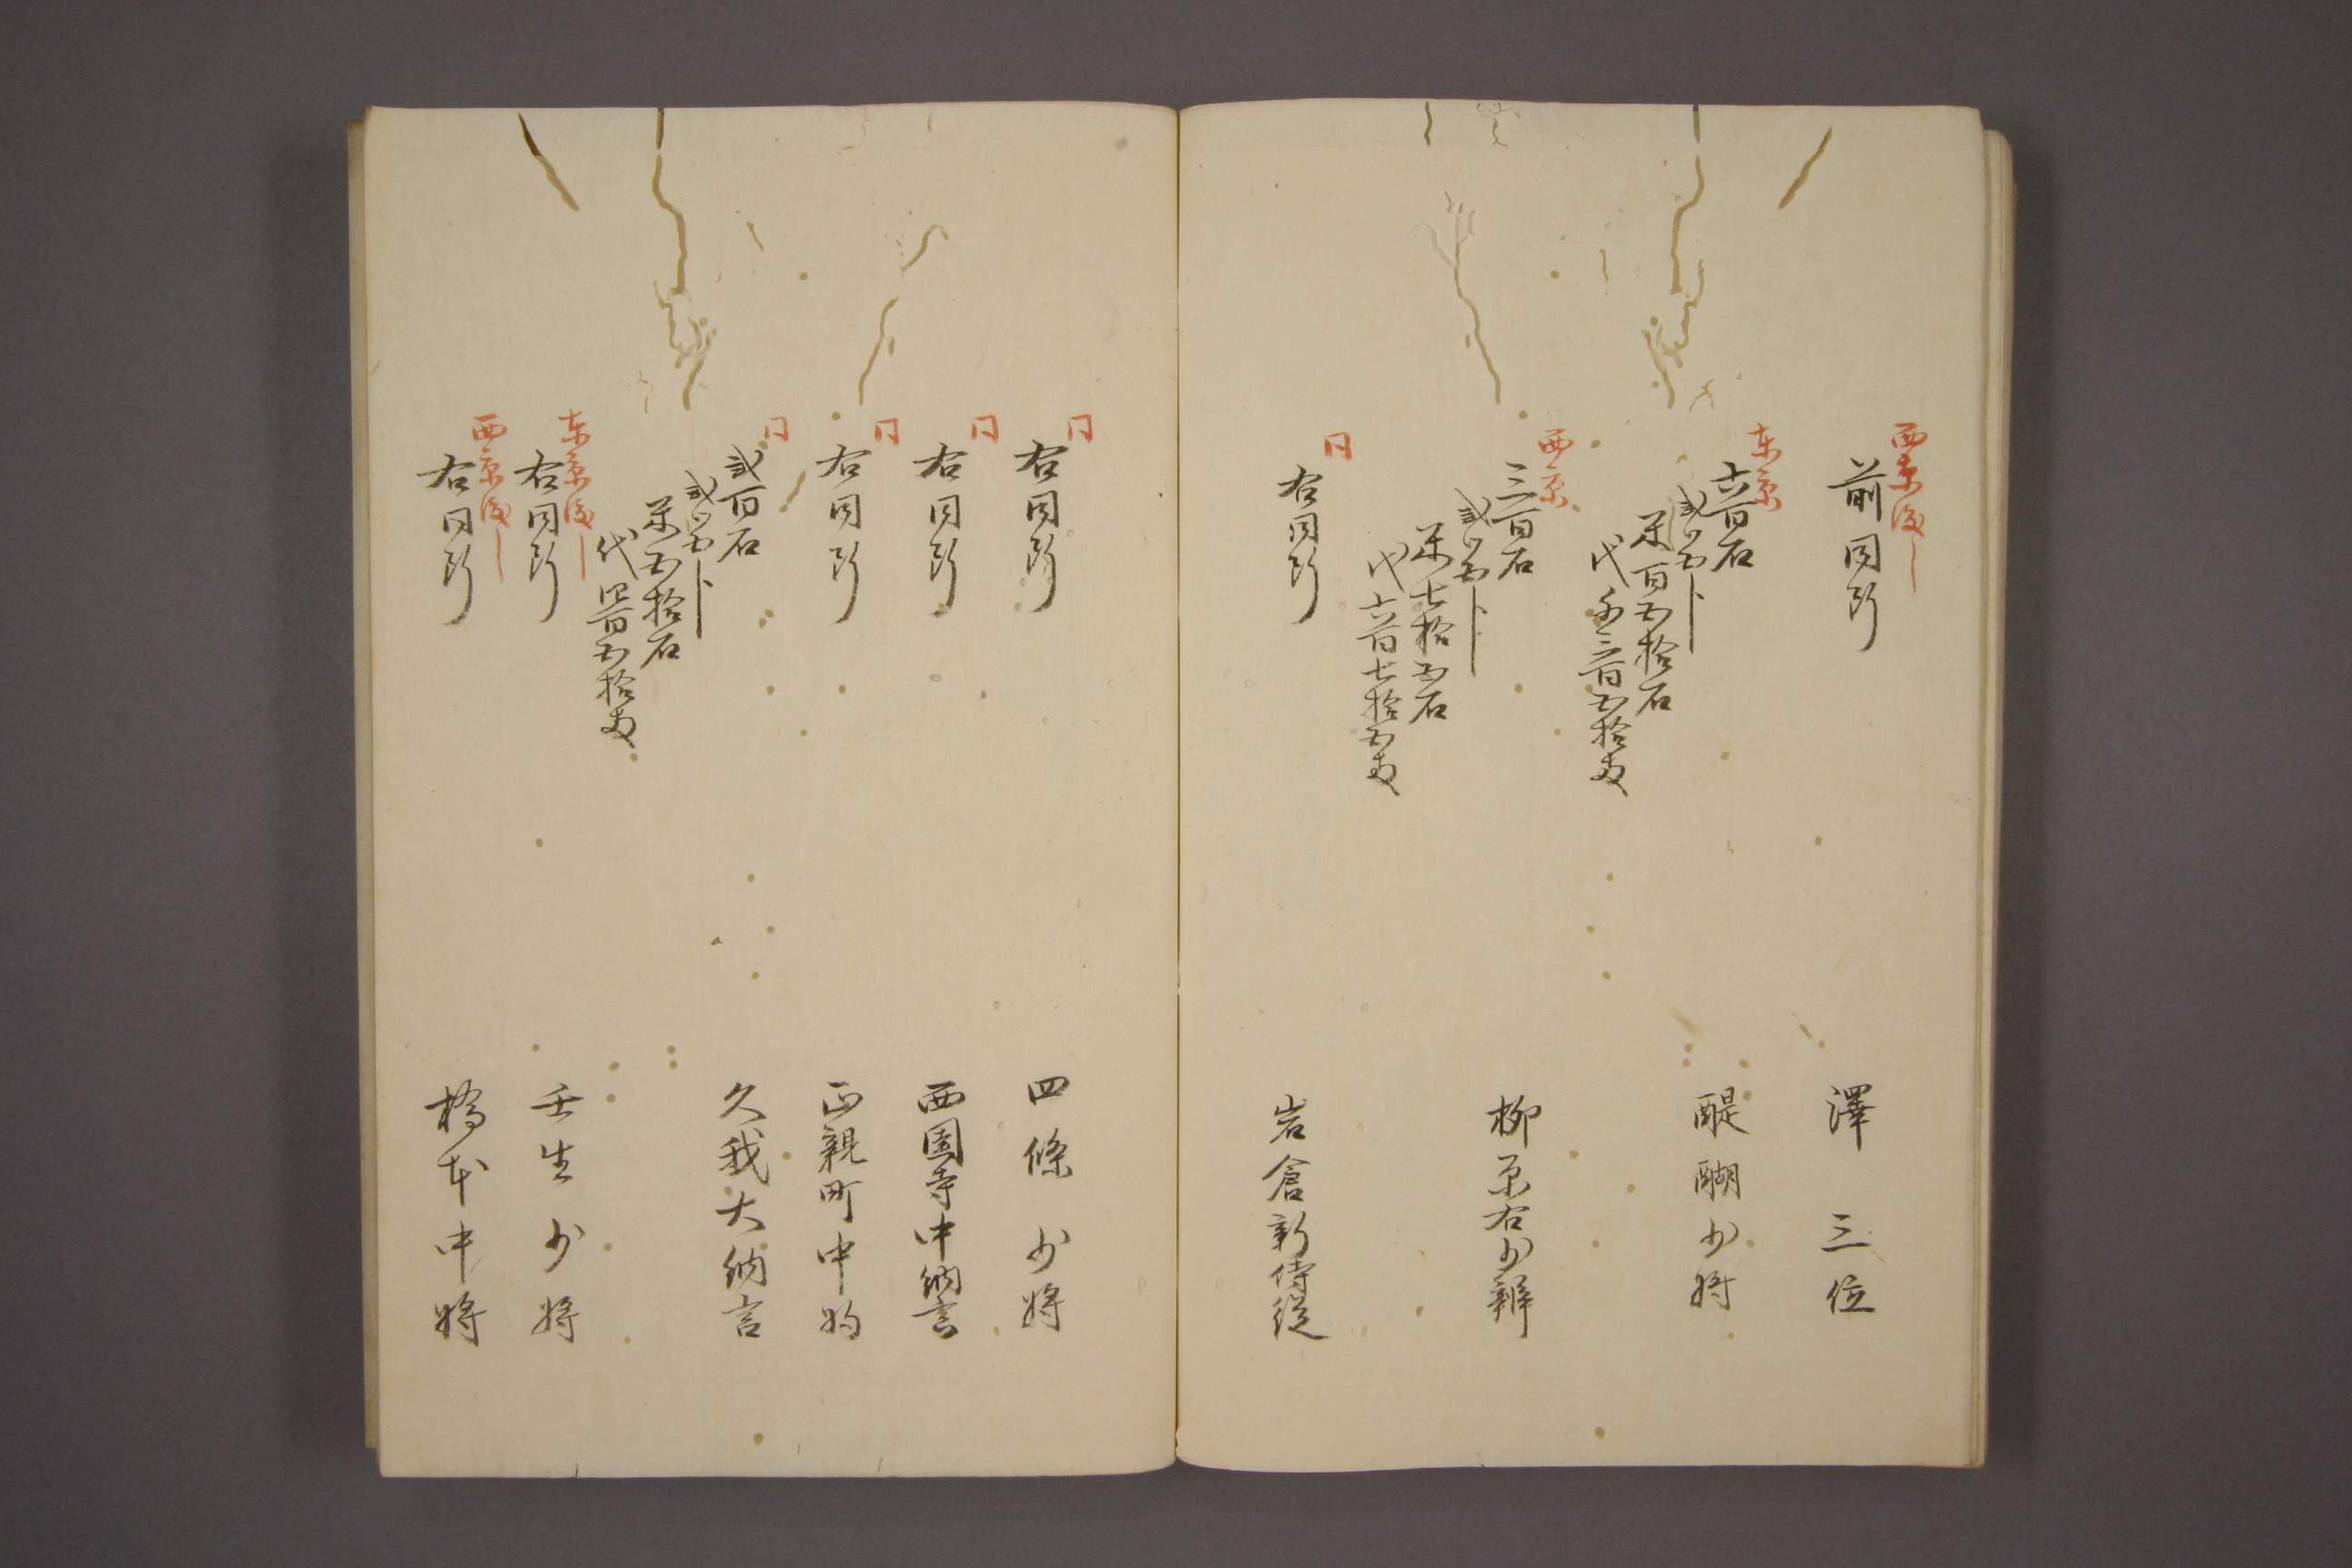 西京済
前同断
澤三位
东京
六百石
米百五拾石
代千三百五拾両
醍醐少将
西京
三百石
米七拾五石
代六百七拾五両
柳原右少辨
同
右同断
岩倉新侍従
同
右同断
四條少将
同
右同断
西園寺中納言
同
右同断
正親町中将
同
弐百石
米五拾石
代四百五拾両
久我大納言
东京済
右同断
壬生少将
西京済
右同断
橋本中将